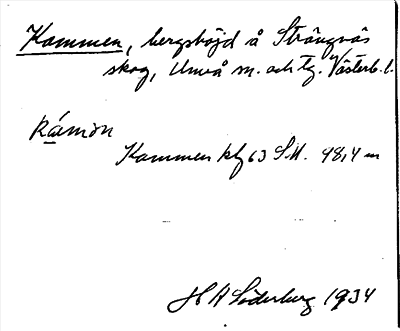 Kammen, bergshöjd å Strångnäs
skog, Umeå sn. och tg. Västerb. l.
Kámön
Kammen kbl 63 S.M. 98,4 m
H A Söderberg 1934